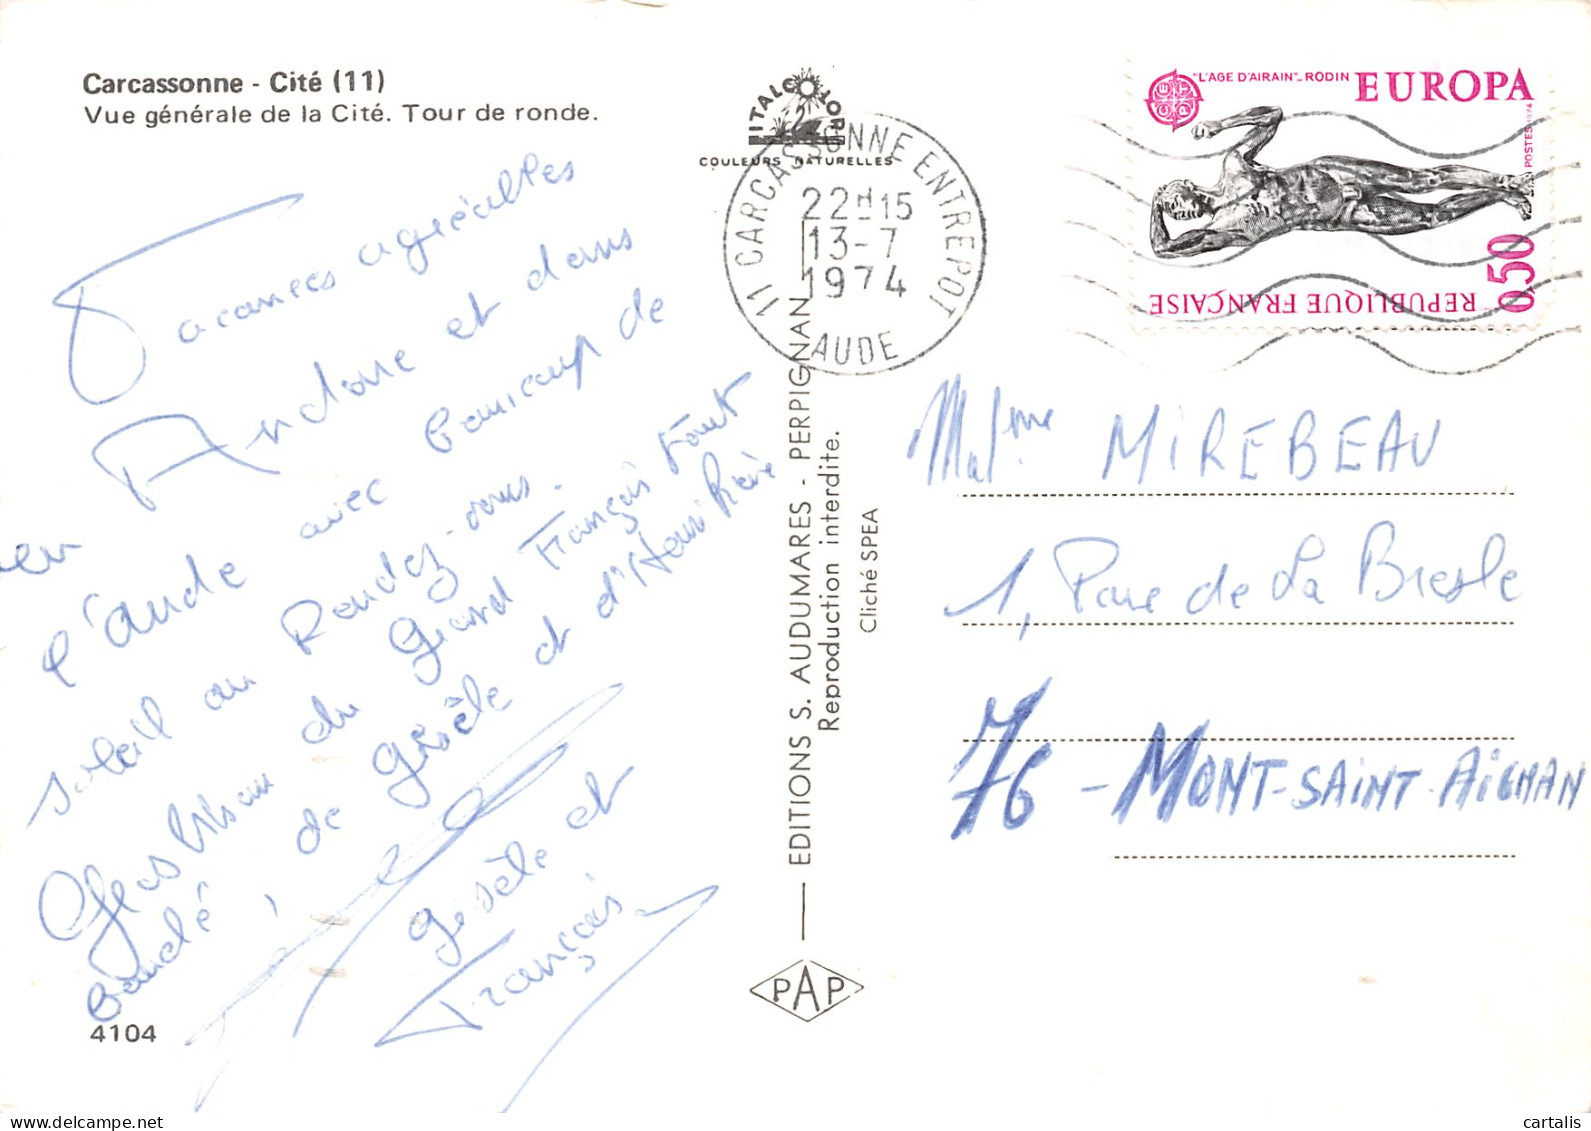 Carcassonne - Cité (11)
Vue générale de la Cité. Tour de ronde.
Vacances agréables
en Andorre et dans
l'Aude avec beaucoup de
soleil au Rendez-vous.
Gros bisous du Grand François tout
de Gisèle et d'Henri
Gisèle et
François
4104
ITALCOLOR
COULEURS NATURELLES
11 CARCASSONNE ENTREPOT
22H15
13-7
1974
AUDE
EDITIONS S. AUDUMARES - PERPIGNAN
Reproduction interdite.
Cliché SPEA
PAP
"L'AGE D'AIRAIN"_RODIN EUROPA
CEPT
POSTES 1974
0,50
REPUBLIQUE FRANÇAISE
MIREBEAU
1, Parc de La Bresle
76 - MONT-SAINT-AIGNAN
cartalis
Tous droits réservés - delcampe.net